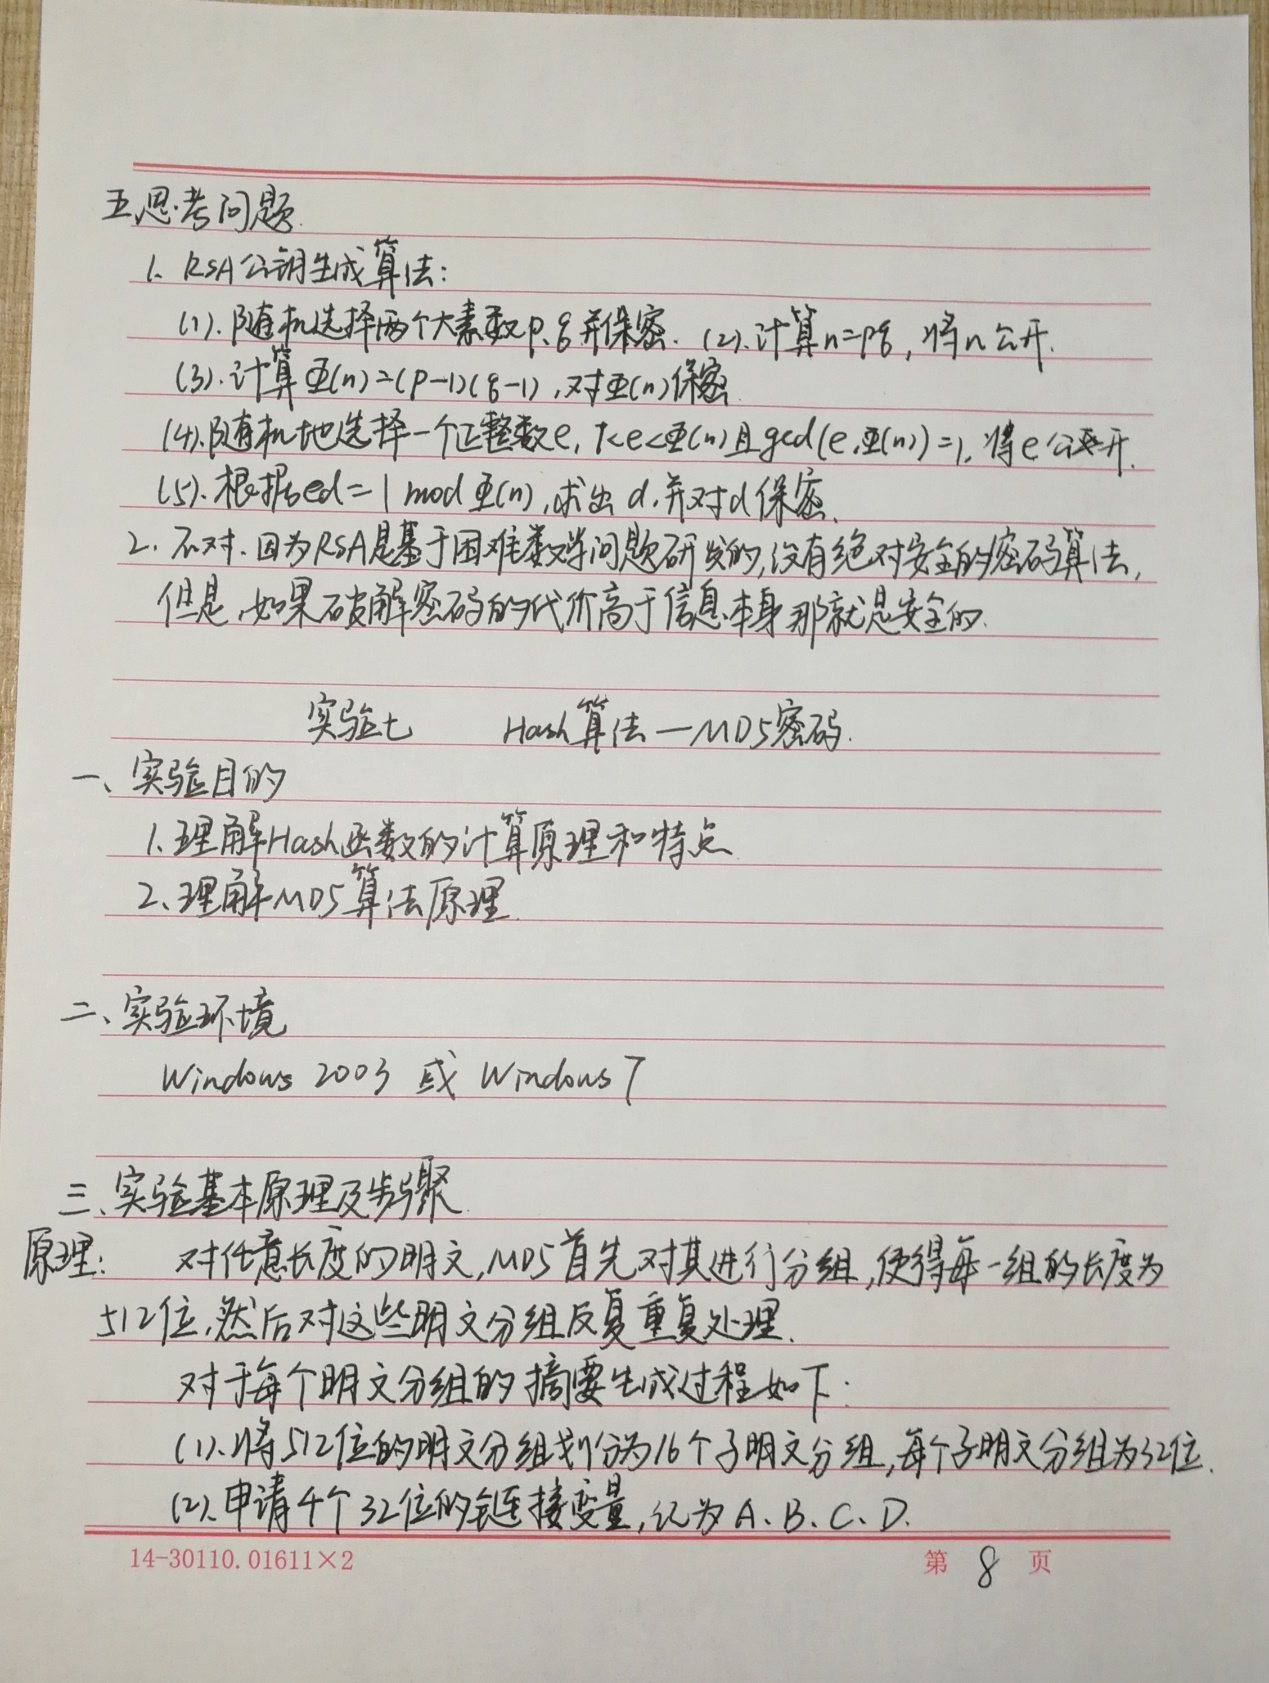 五.思考问题.
1. RSA公钥生成算法:
(1).随机选择两个大素数p、q并保密. (2).计算n=pq,将n公开.
(3).计算Φ(n)=(p-1)(q-1),对Φ(n)保密
(4).随机地选择一个正整数e,1<e<Φ(n)且gcd(e,Φ(n))=1,将e公开.
(5).根据ed=1 mod Φ(n),求出d,并对d保密.
2. 不对.因为RSA是基于困难数学问题研发的,没有绝对安全的密码算法,
但是,如果破解密码的代价高于信息本身那就是安全的.
实验七 Hash算法—MD5密码.
一、实验目的
1.理解Hash函数的计算原理和特点
2、理解MD5算法原理.
二、实验环境
Windows 2003 或 Windows 7
三、实验基本原理及步骤
原理: 对任意长度的明文,MD5首先对其进行分组,使得每一组的长度为
512位,然后对这些明文分组反复重复处理.
对于每个明文分组的摘要生成过程如下:
(1).将512位的明文分组划分为16个子明文分组,每个子明文分组为32位.
(2).申请4个32位的链接变量,记为A、B、C、D.
14-30110.01611×2 第 8 页